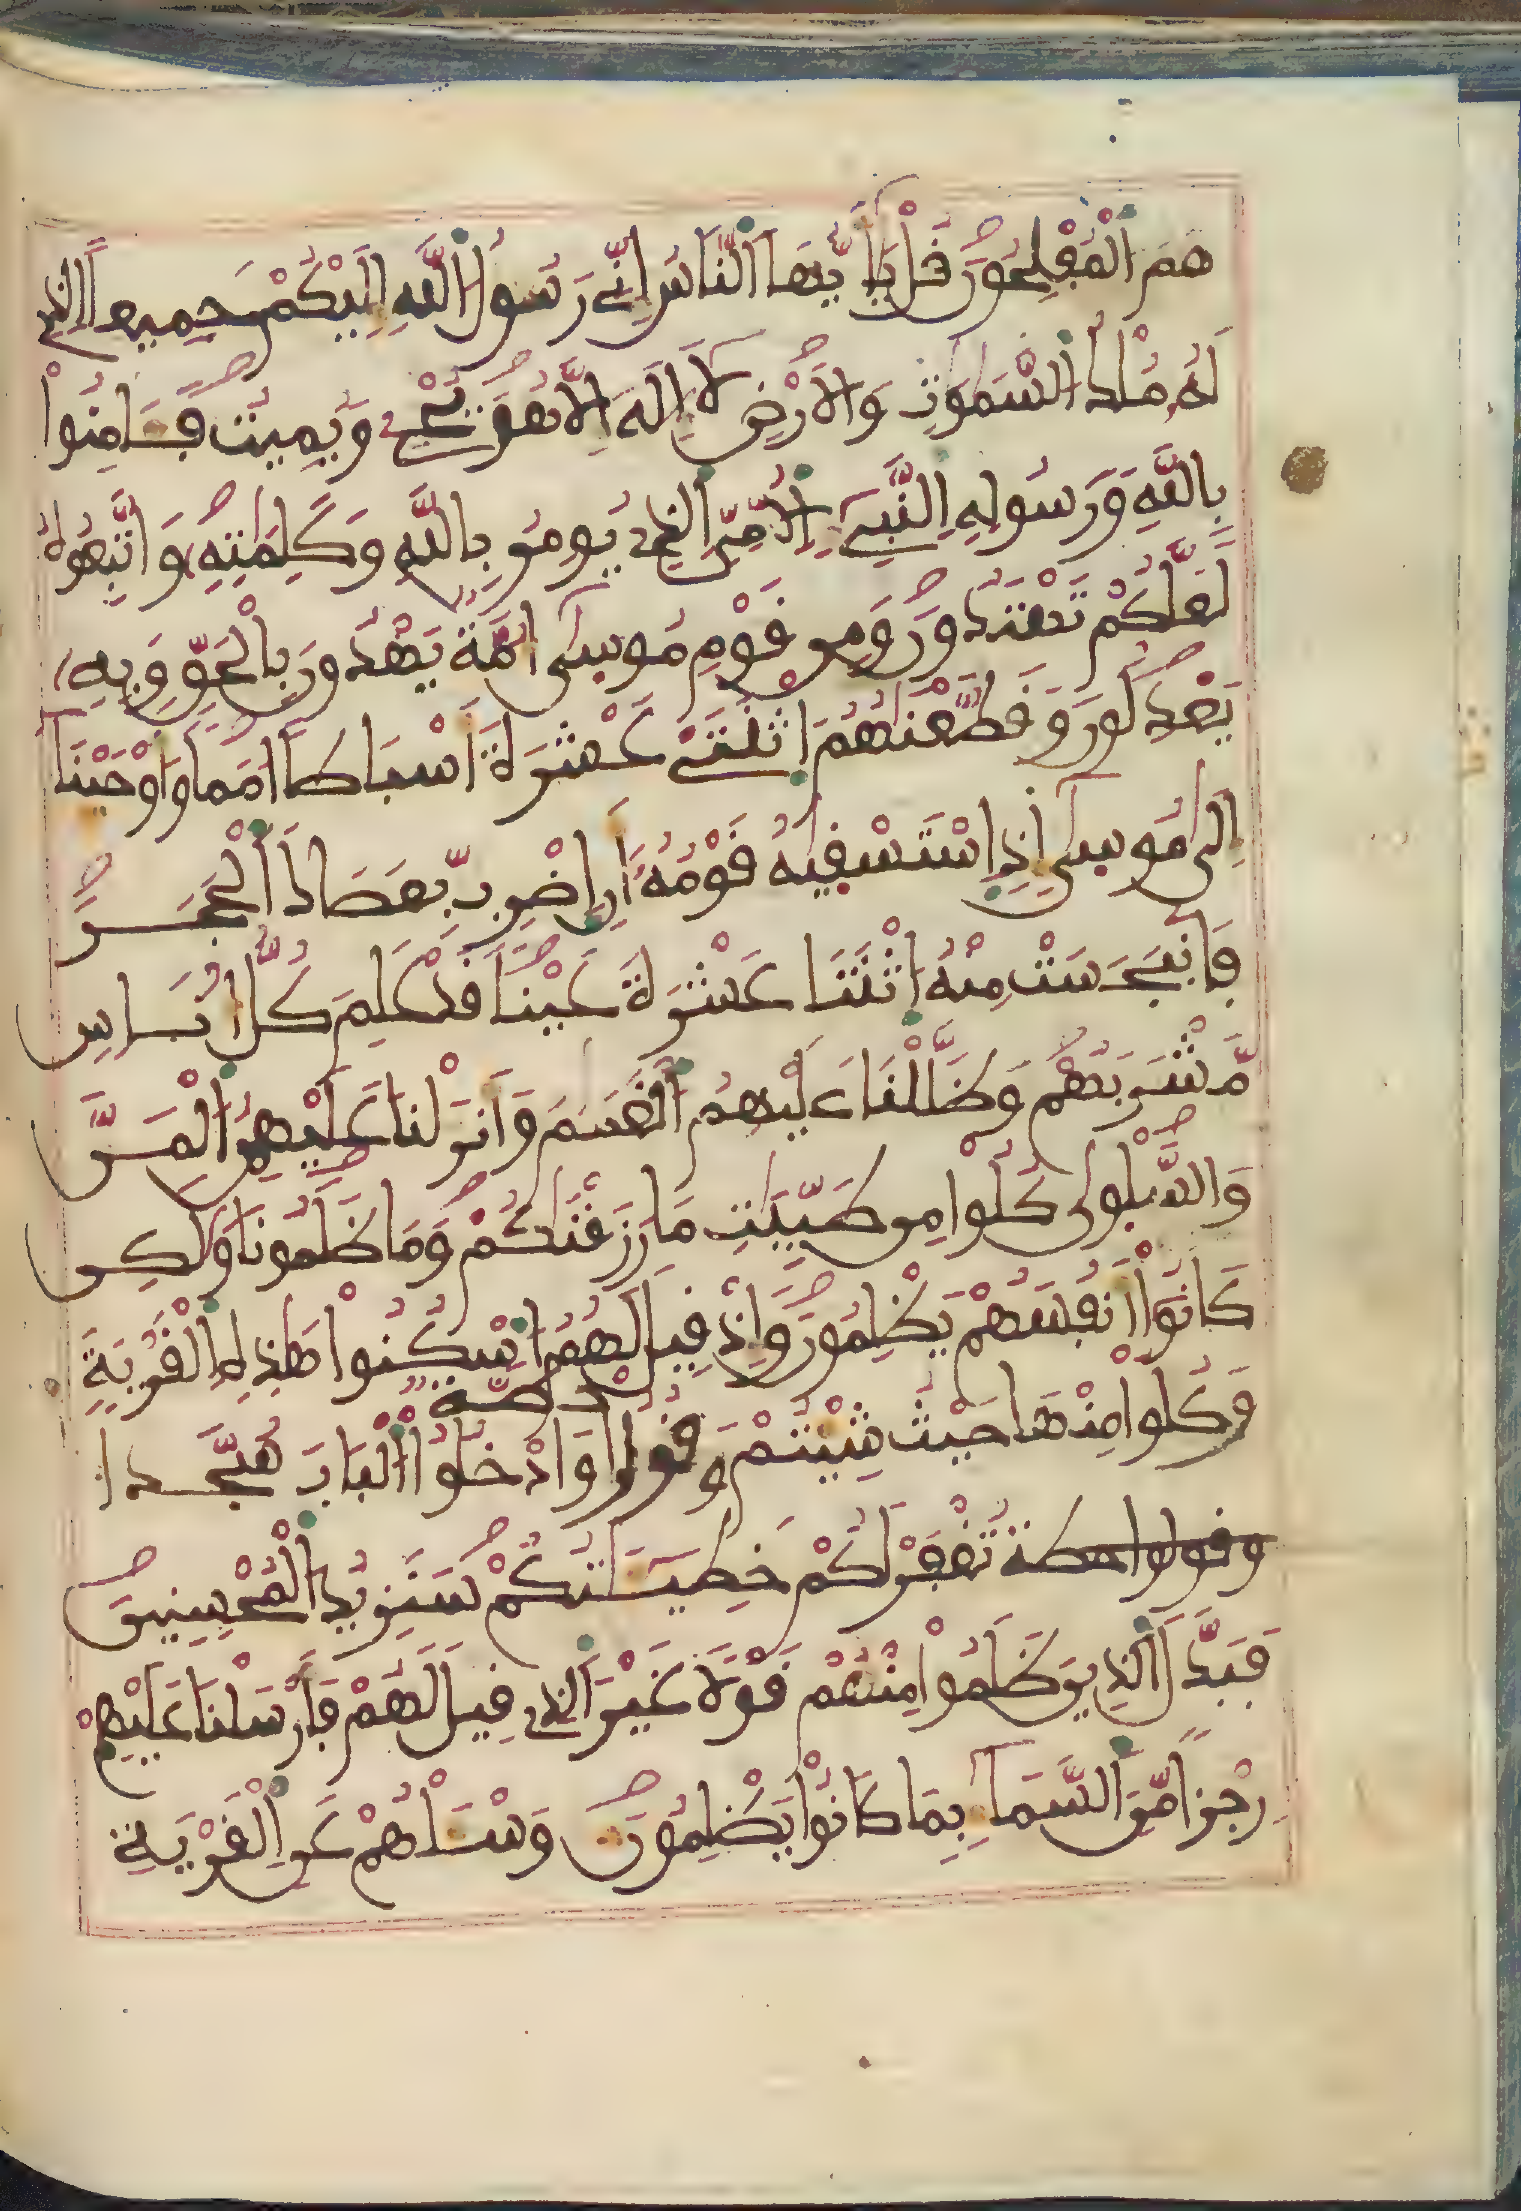 هُمُ الْمُفْلِحُونَ قُلْ يَا أَيُّهَا النَّاسُ إِنِّي رَسُولُ اللَّهِ إِلَيْكُمْ جَمِيعًا الَّذِي
لَهُ مُلْكُ السَّمَوَتِ وَالْأَرْضِ لَا إِلَهَ إِلَّا هُوَ يُحْيِ وَيُمِيتُ فَـَٔامِنُوا
بِاللَّهِ وَرَسُولِهِ النَّبِيِّ الْأُمِّيِّ الَّذِي يُومِنُ بِاللَّهِ وَكَلِمَتِهِ وَاتَّبِعُوهُ
لَعَلَّكُمْ تَهْتَدُونَ وَمِن قَوْمِ مُوسَى أُمَّةٌ يَهْدُونَ بِالْحَقِّ وَبِهِ
يَعْدِلُونَ وَقَطَّعْنَهُمُ اثْنَتَيْ عَشْرَةَ أَسْبَاطًا أُمَمًا وَأَوْحَيْنَا
إِلَى مُوسَى إِذِ اسْتَسْقِيهُ قَوْمُهُ أَنِ اضْرِب بِّعَصَاكَ الْحَجَرَ
فَانبَجَسَتْ مِنْهُ اثْنَتَا عَشْرَةَ عَيْنًا قَدْ عَلِمَ كُلُّ أُنَاسٍ
مَّشْرَبَهُمْ وَظَلَّلْنَا عَلَيْهِمُ الْغَمَمَ وَأَنزَلْنَا عَلَيْهِمُ الْمَنَّ
وَالسَّلْوَى كُلُوا مِن طَيِّبَتِ مَا رَزَقْنَكُمْ وَمَا ظَلَمُونَا وَلَكِن
كَانُوا أَنفُسَهُمْ يَظْلِمُونَ وَإِذْ قِيلَ لَهُمُ اسْكُنُوا هَذِهِ الْقَرْيَةَ
وَكُلُوا مِنْهَا حَيْثُ شِيْتُمْ وَقُولُوا حِطَّةٌ وَادْخُلُوا الْبَابَ سُجَّدًا
وقولوا حطة تُغْفَرْ لَكُمْ خَطِيـَٔتُكُمْ سَنَزِيدُ الْمُحْسِنِينَ
فَبَدَّلَ الَّذِينَ ظَلَمُوا مِنْهُمْ قَوْلًا غَيْرَ الَّذِي قِيلَ لَهُمْ فَأَرْسَلْنَا عَلَيْهِمْ
رِجْزًا مِّنَ السَّمَاءِ بِمَا كَانُوا يَظْلِمُونَ وَسْـَٔلْهُمْ عَنِ الْقَرْيَةِ